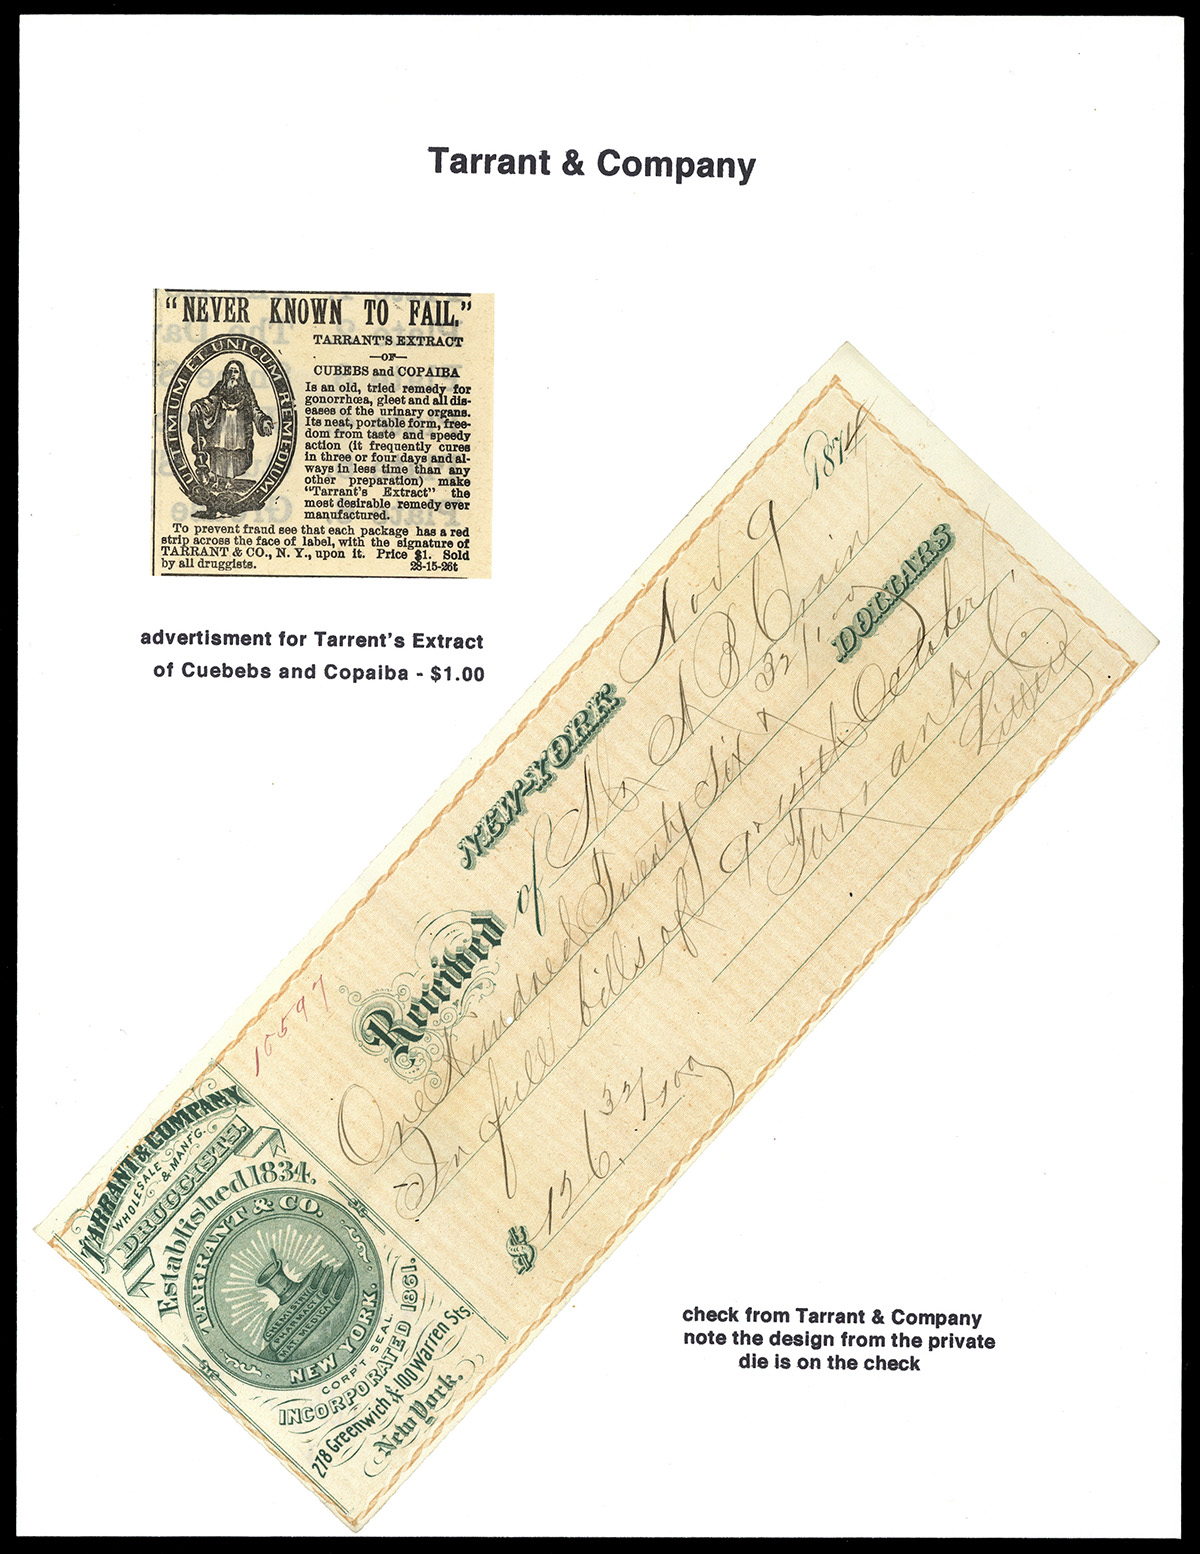 Tarrant & Company
"NEVER KNOWN TO FAIL."
TARRANT'S EXTRACT
—OF—
CUBEBS and COPAIBA
Is an old, tried remedy for
gonorrhœa, gleet and all dis-
eases of the urinary organs.
Its neat, portable form, free-
dom from taste and speedy
action (it frequently cures
in three or four days and al-
ways in less time than any
other preparation) make
"Tarrant's Extract" the
most desirable remedy ever
manufactured.
To prevent fraud see that each package has a red
strip across the face of label, with the signature of
TARRANT & CO., N. Y., upon it. Price $1. Sold
by all druggists. 28-15-26t
ULTIMUM ET UNICUM REMEDIUM
advertisment for Tarrent's Extract
of Cuebebs and Copaiba - $1.00
10597
NEW-YORK Nov 9 1874
Received of Mr A B Crain
One Hundred Twenty Six & 32/100 DOLLARS
In full bills of 9 October
Tarrant & Co
$126.32/100
TARRANT & COMPANY
WHOLESALE & MANFG.
DRUGGISTS.
Established 1834.
TARRANT & CO.
CHEMISTRY
PHARMACY
MAT MEDICA
NEW YORK.
CORP'T SEAL.
INCORPORATED 1861.
278 Greenwich & 100 Warren Sts.
New York.
check from Tarrant & Company
note the design from the private
die is on the check